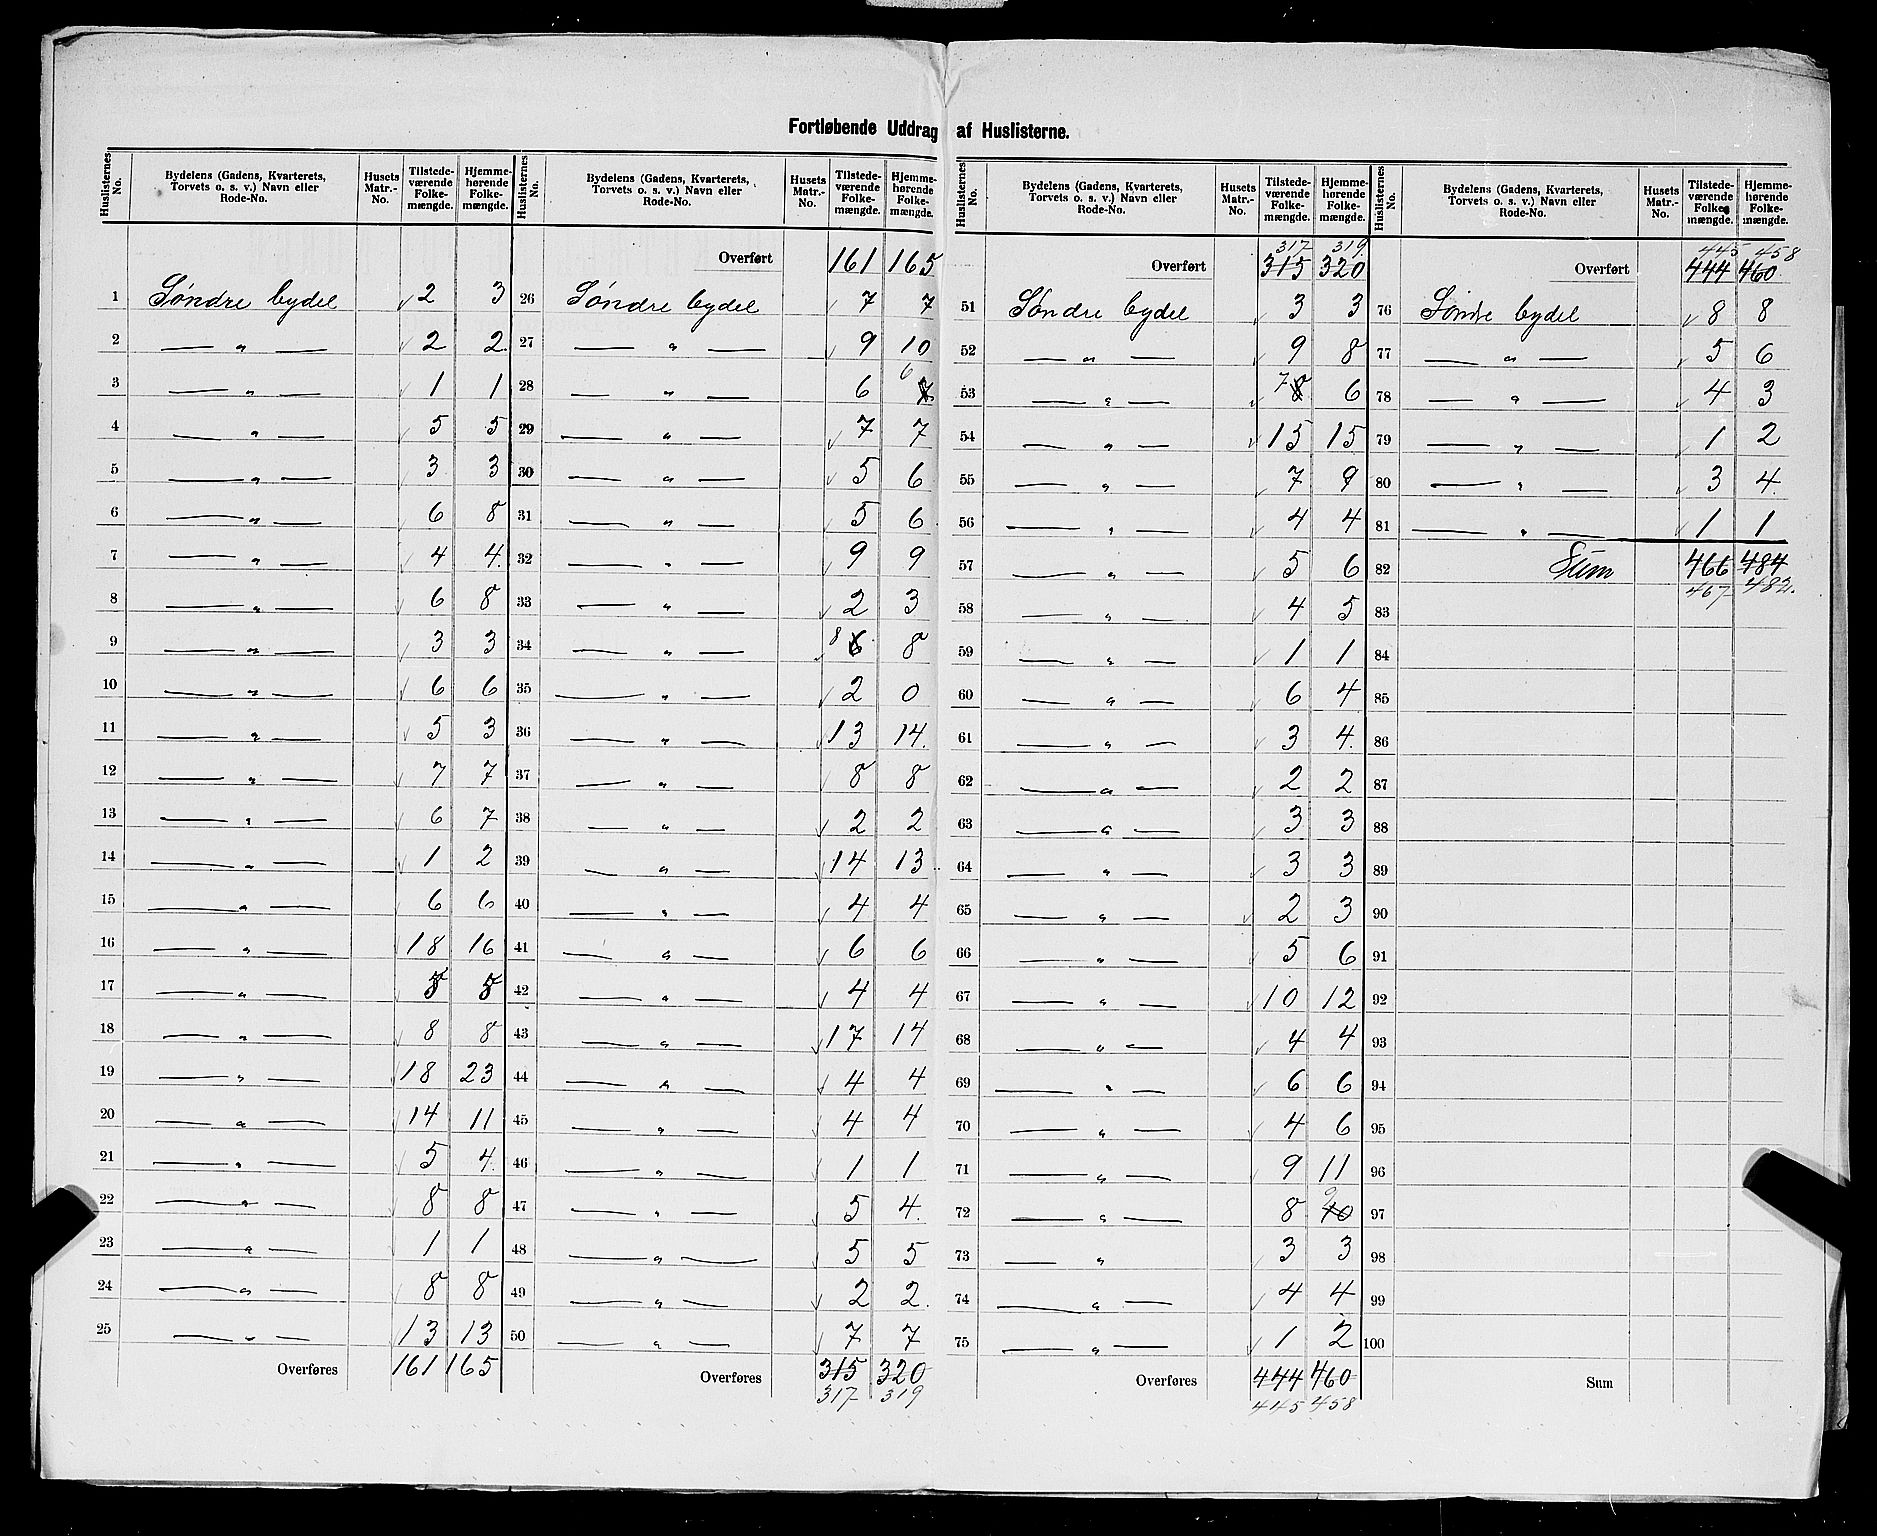 Fortløbende Uddrag af Huslisterne.
Huslisternes No. | Bydelens (Gadens, Kvarterets, Torvets o. s. v.) Navn eller Rode-No. | Husets Matr.-No. | Tilstedeværende Folkemængde. | Hjemmehørende Folkemængde.
1 Søndre bydel 2 3
2 — „ — 2 2
3 — „ — 1 1
4 — „ — 5 5
5 — „ — 3 3
6 — „ — 6 8
7 — „ — 4 4.
8 — „ — 6 8
9 — „ — 3 3
10 — „ — 6 6
11 — „ — 5 3
12 — „ — 7 7
13 — „ — 6 7
14 — „ — 1 2
15 — „ — 6 6
16 — „ — 18 16
17 — „ — 5
18 — „ — 8 8
19 — „ — 18 23
20 — „ — 14 11
21 — „ — 5 4.
22 — „ — 8 8
23 — „ — 1 1
24 — „ — 8 8
25 — „ — 13 13
Overføres 161 165
Huslisternes No. | Bydelens (Gadens, Kvarterets, Torvets o. s. v.) Navn eller Rode-No. | Husets Matr.-No. | Tilstedeværende Folkemængde. | Hjemmehørende Folkemængde.
Overført 161 165
26 Søndre bydel 7 7
27 — „ — 9 10
28 — „ — 6 7 6
29 — „ — 7 7
30 — „ — 5 6
31 — „ — 5 6
32 — „ — 9 9
33 — „ — 2 3
34 — „ — 8 6 8
35 — „ — 2 0
36 — „ — 13 14.
37 — „ — 8 8
38 — „ — 2 2
39 — „ — 14 13
40 — „ — 4 4
41 — „ — 6 6
42 — „ — 4 4
43 — „ — 17 14
44 — „ — 4 4
45 — „ — 4 4
46 — „ — 1 1
47 — „ — 5 4.
48 — „ — 5 5
49 — „ — 2 2.
50 — „ — 7 7
Overføres 315 320
317 319
Huslisternes No. | Bydelens (Gadens, Kvarterets, Torvets o. s. v.) Navn eller Rode-No. | Husets Matr.-No. | Tilstedeværende Folkemængde. | Hjemmehørende Folkemængde.
317 319.
Overført 315 320
51 Søndre bydel 3 3
52 — „ — 9 8
53 — „ — 7 8 6
54 — „ — 15 15
55 — „ — 7 9
56 — „ — 4 4
57 — „ — 5 6
58 — „ — 4 5
59 — „ — 1 1
60 — „ — 6 4
61 — „ — 3 4.
62 — „ — 2 2
63 — „ — 3 3
64 — „ — 3 3
65 — „ — 2 3
66 — „ — 5 6
67 — „ — 10 12
68 — „ — 4 4
69 — „ — 6 6
70 — „ — 4 6
71 — „ — 9 11
72 — „ — 8 10 9
73 — „ 3 3
74 — „ — 4 4
75 — „ — 1 2
Overføres 444 460
445 458
Huslisternes No. | Bydelens (Gadens, Kvarterets, Torvets o. s. v.) Navn eller Rode-No. | Husets Matr.-No. | Tilstedeværende Folkemængde. | Hjemmehørende Folkemængde.
445 458
Overført 444 460
76 Søndre bydel 8 8
77 — „ — 5 6
78 — „ — 4 3
79 — „ — 1 2
80 — „ — 3 4.
81 — „ — 1 1
82 Sum 466 484
467 482.
83
84
85
86
87
88
89
90
91
92
93
94
95
96
97
98
99
100
Sum